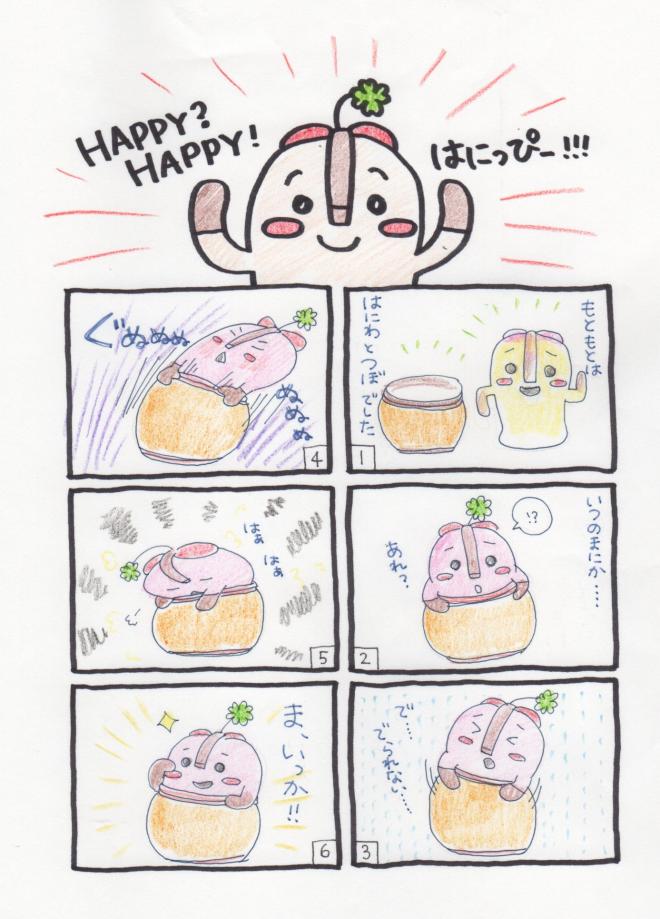 HAPPY?
HAPPY!
はにっぴー!!!
もともとは
はにわとつぼでした
1
いつのまにか……
!?
あれ?
2
で……
でられない……
3
ぐぬぬぬ
ぬぬぬ
4
はぁ
はぁ
5
ま、いっか!!
6